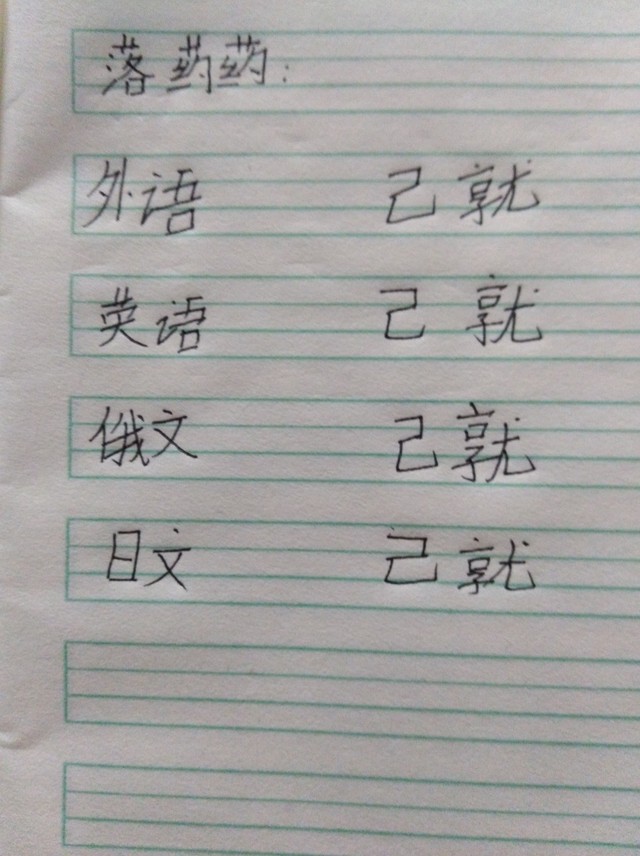 落药药：
外语 己就
英语 己就
俄文 己就
日文 己就